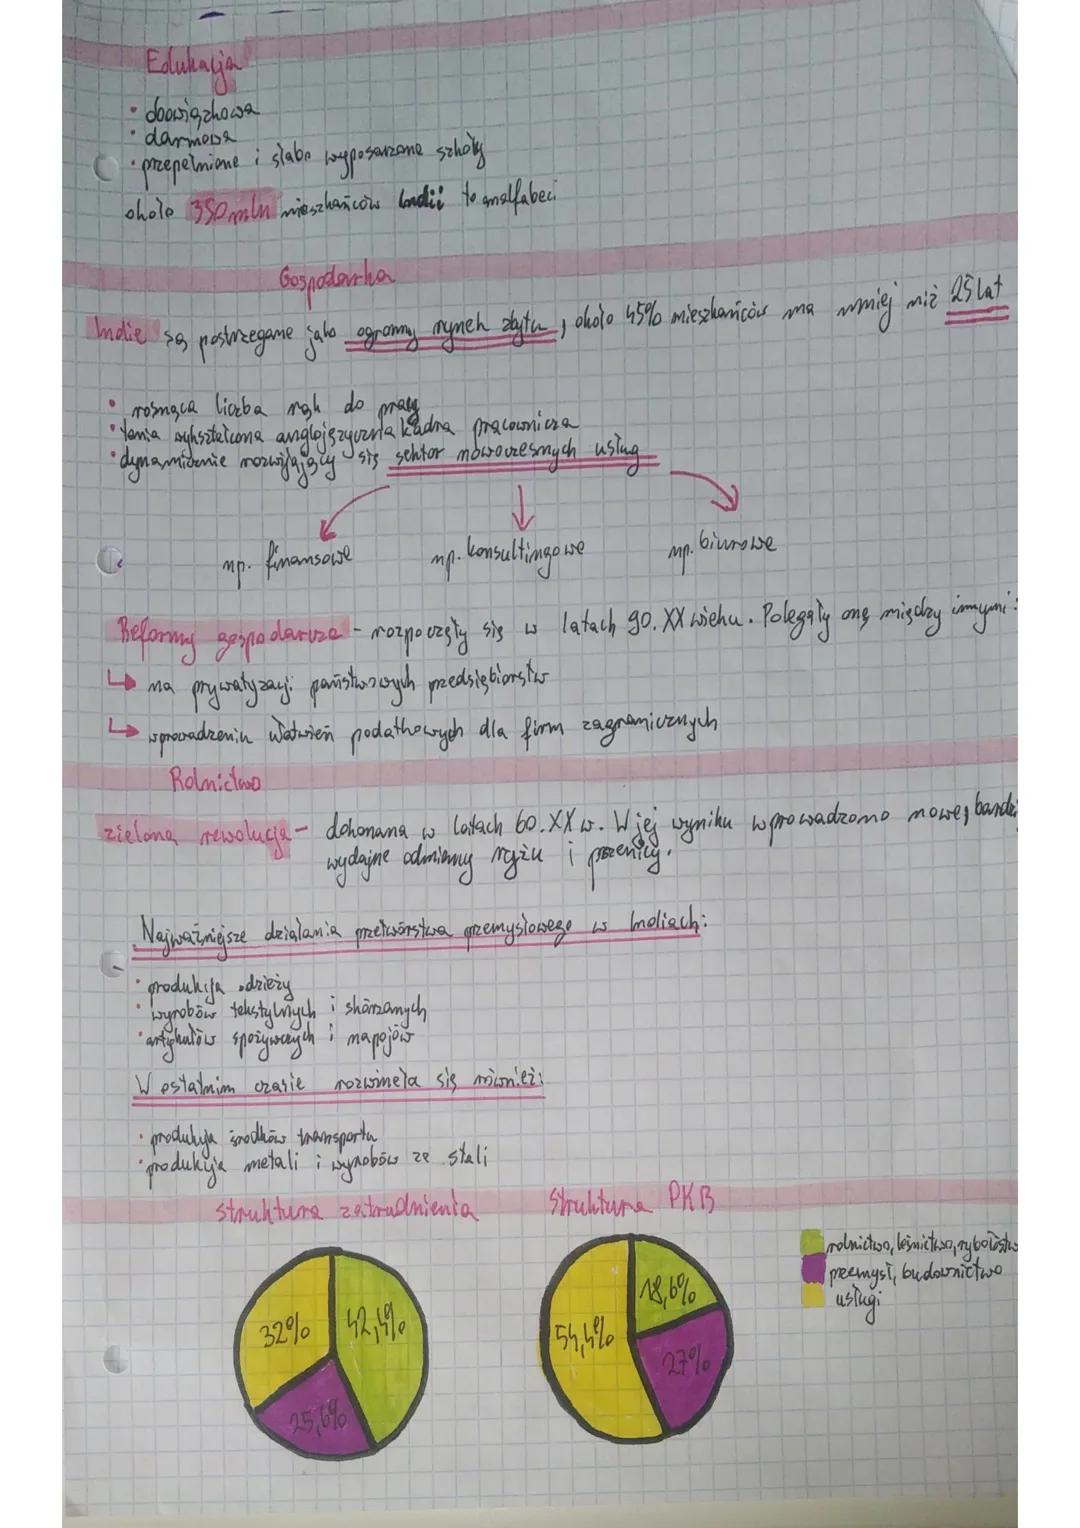 Edukacja
• obowiązkowa
• darmowa
• przepełnione i słabo wyposarzone szkoły
około 350 mln mieszkańców Indii to analfabeci
Gospodarka
Indie są postrzegane jako ogromny rynek zbytu, około 45% mieszkańców ma mniej niż 25 lat
• rosnąca liczba rąk do pracy
• tania wykształcona anglojęzyczna kadra pracownicza
• dynamicznie rozwijający się sektor nowoczesnych usług
np. finansowe np. konsultingowe np. biurowe
Reformy gospodarcze - rozpoczęły się w latach 90. XX wieku. Polegały one między innymi:
↳ na prywatyzacji państwowych przedsiębiorstw
↳ wprowadzeniu ułatwień podatkowych dla firm zagranicznych
Rolnictwo
zielona rewolucja - dokonana w latach 60. XX w. W jej wyniku wprowadzono nowe, bardzi
wydajne odmiany ryżu i pszenicy.
Najważniejsze działania przetwórstwa przemysłowego w Indiach:
• produkcja odzieży
• wyrobów tekstylnych i skórzanych
• artykułów spożywczych i napojów
W ostatnim czasie rozwineła się również:
• produkcja środków transportu
• produkcja metali i wyrobów ze stali
struktura zatrudnienia Struktura PKB
rolnictwo, leśnictwo, rybołóstwo
przemysł, budownictwo
usługi
32% 42,4% 25,6%
54,4% 18,6% 27%